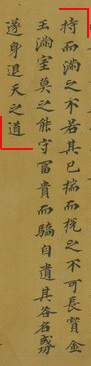 持而滿之不若其已揣而梲之不可長寶金
玉滿室莫之能守冨貴而驕自遺其咎名成功
遂身退天之道